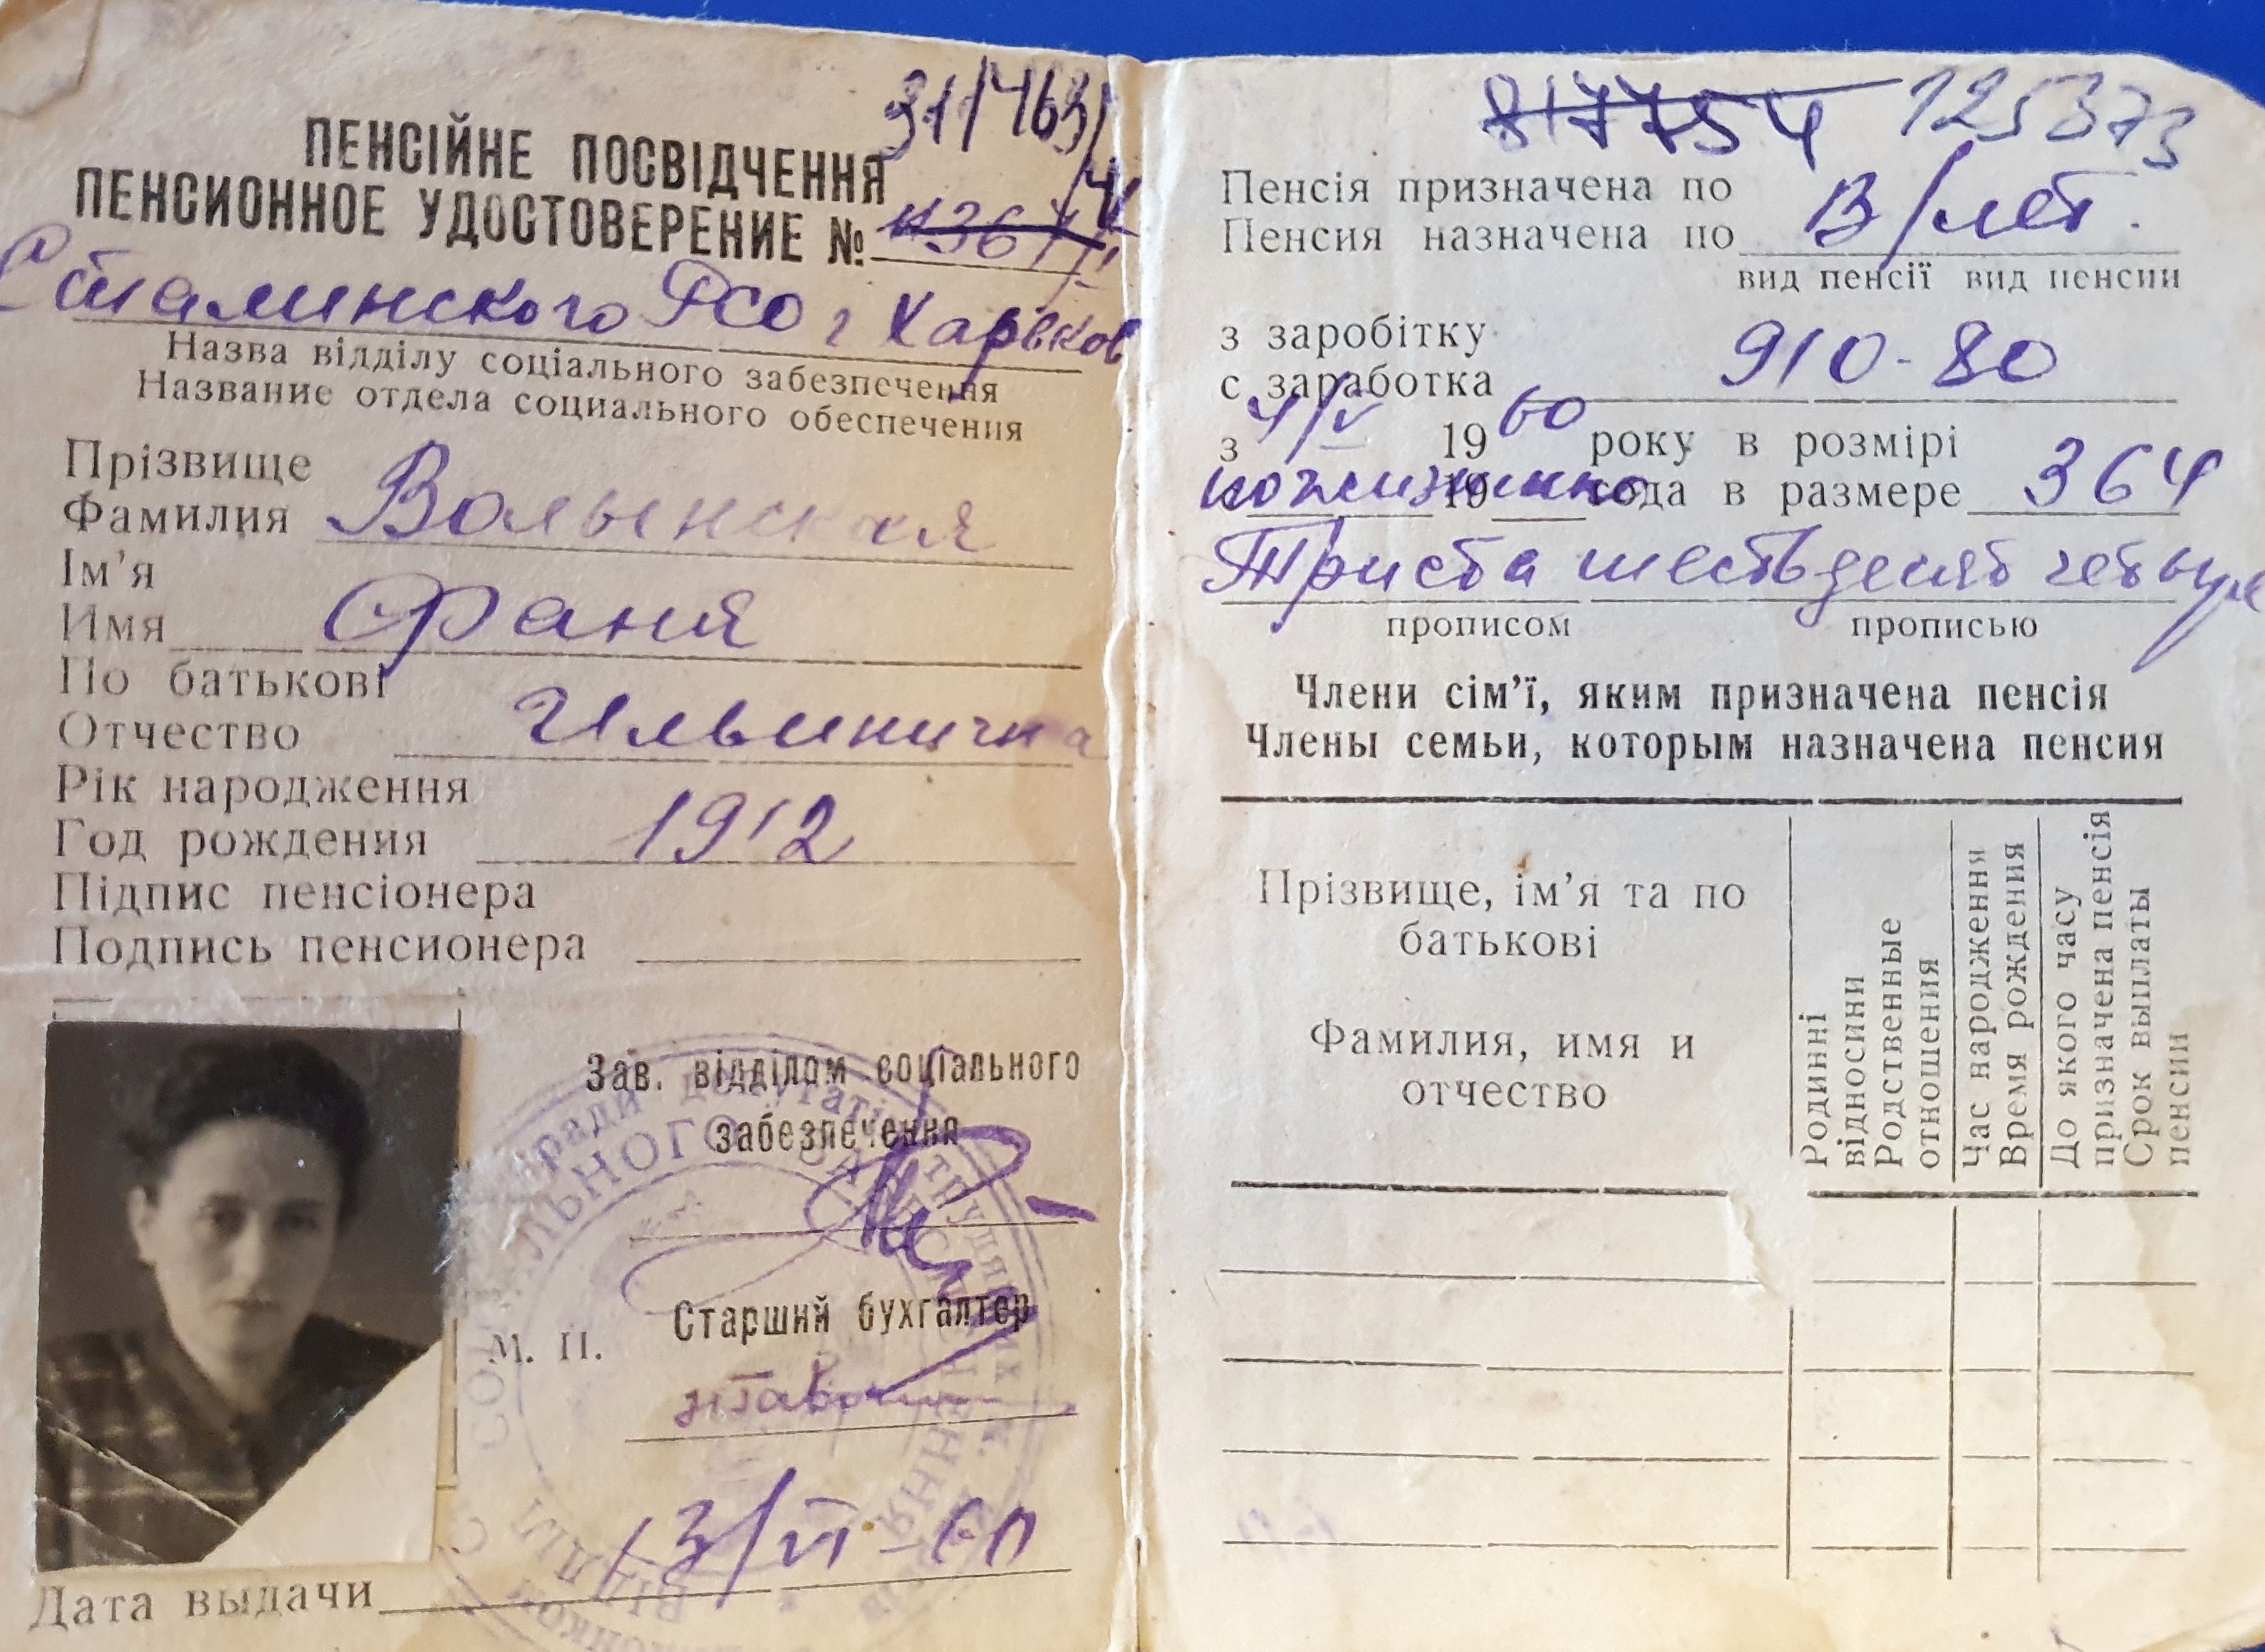 31/463/
ПЕНСІЙНЕ ПОСВІДЧЕННЯ
ПЕНСИОННОЕ УДОСТОВЕРЕНИЕ №
Сталинского РСО г Харьков
Назва відділу соціального забезпечення
Название отдела социального обеспечения
Прізвище
Фамилия Волынская
Ім'я
Имя Фаня
По батькові
Отчество Ильинична
Рік народження
Год рождения 1912
Підпис пенсіонера
Подпись пенсионера
Зав. відділом соціального
забезпечення
Старший бухгалтер
М. П.
Дата выдачи 13/VI-60
817754 125373
Пенсія призначена по
Пенсия назначена по В/лет.
вид пенсії вид пенсии
з заробітку
с заработка 910-80
з 4/V 1960 року в розмірі
пожизненно 19 года в размере 364
Триста шестьдесят четыре
прописом прописью
Члени сім'ї, яким призначена пенсія
Члены семьи, которым назначена пенсия
Прізвище, ім'я та по
батькові
Фамилия, имя и
отчество
Родинні
відносини
Родственные
отношения
Час народження
Время рождения
До якого часу
призначена пенсія
Срок выплаты
пенсии